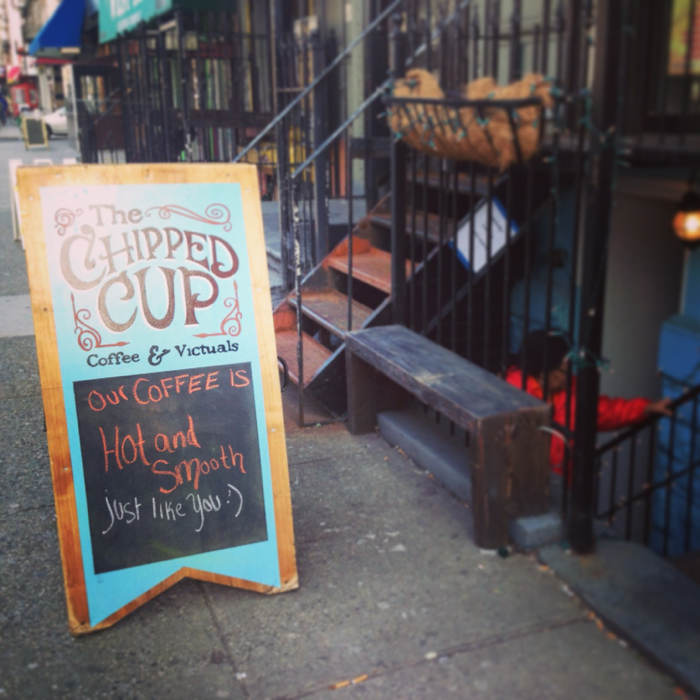 The
CHIPPED
CUP
Coffee & Victuals
Our COFFEE is
Hot and
Smooth
just like you :)